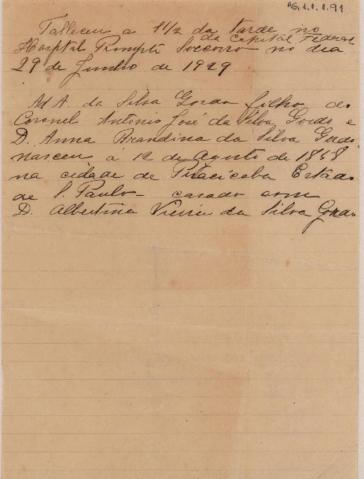 AG.1.1.1.91
Falleceu a 1 1/2 da tarde no
da Capital Federal
Hospital Prompto Soccorro no dia
29 de Junho de 1929
Ad A. da Silva Gordo filho do
Coronel Antonio José da Silva Gordo e
D. Anna Brandina da Silva Gordo
nasceu a 12 de Agosto de
na cidade de Piracicaba Estado
de S. Paulo - casado com
D. Albertina Vieira da Silva Gordo